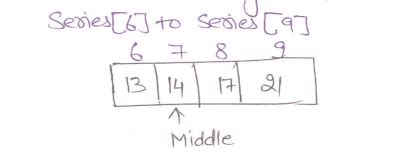 Series[6] to Series[9]
6 7 8 9
13 14 17 21
↑
Middle